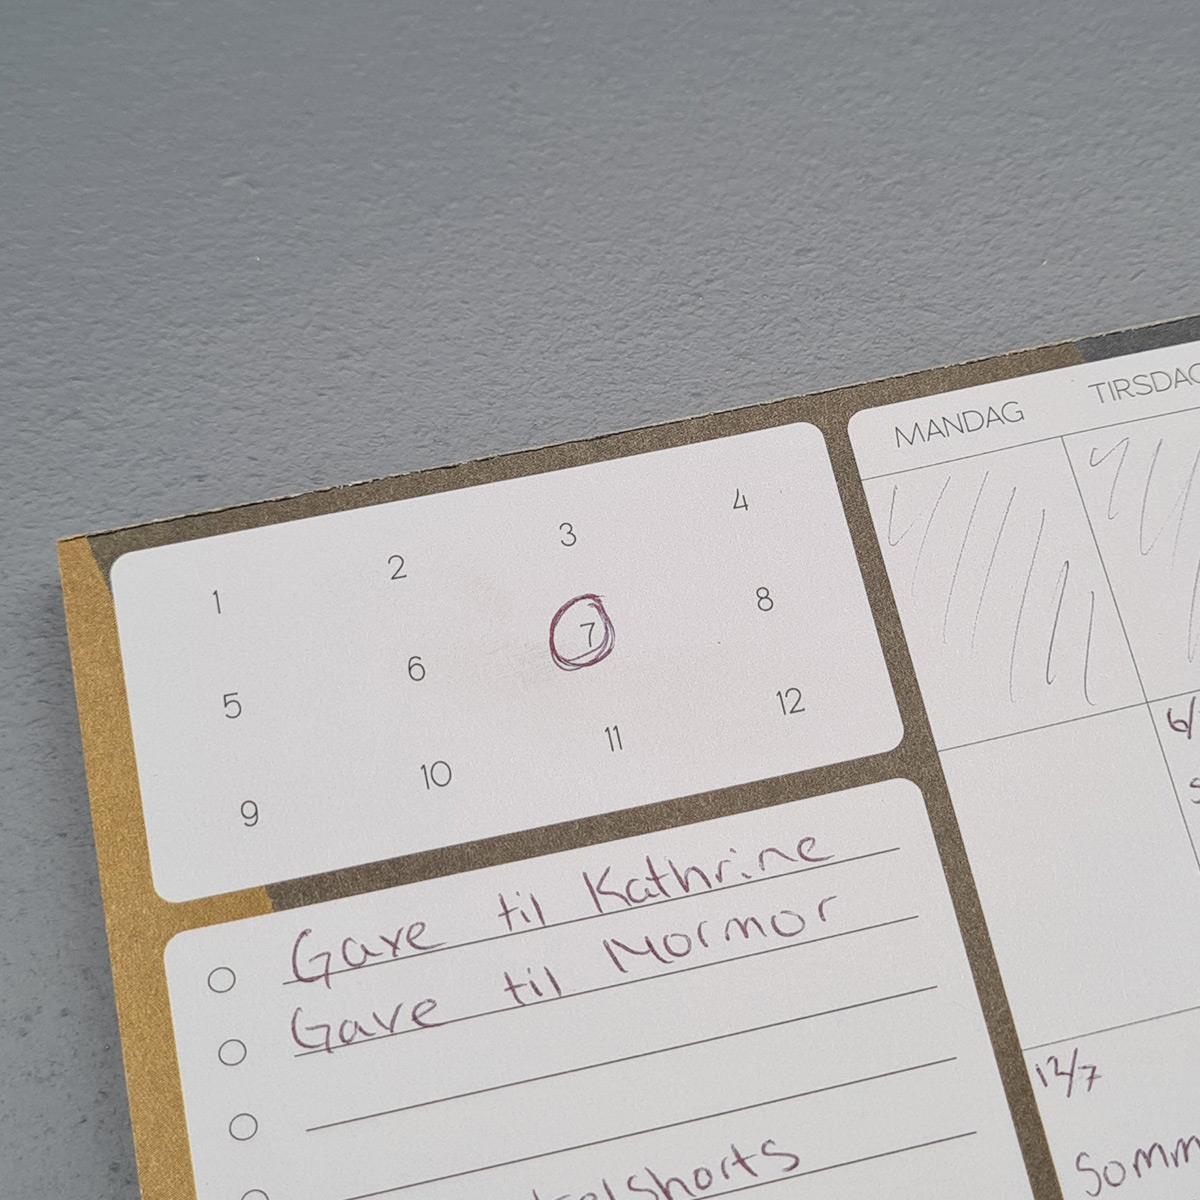 1 2 3 4
5 6 7 8
9 10 11 12
MANDAG TIRSDAG
Gave til Kathrine
Gave til Mormor
6/
12/7